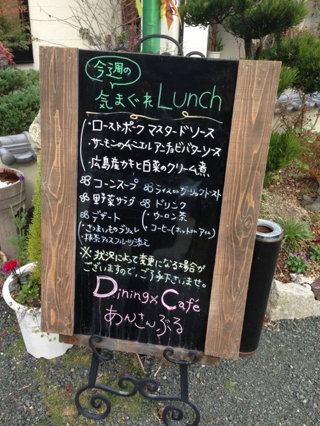 今週の
気まぐれLunch
・ローストポーク マスタードソース
・サーモンのムニエル アンチョビバターソース
・広島産カキと白菜のクリーム煮
コーンスープ
ライスorガーリックトースト
野菜サラダ
ドリンク
デザート
・ウーロン茶
・さつまいものブリュレ
・コーヒー(Hot or Ice)
・抹茶アイスフルーツ添え
※状況に応じて変更になる場合が
ございますので、ご了承下さいませ。
Dining×Café
あんさんぶる